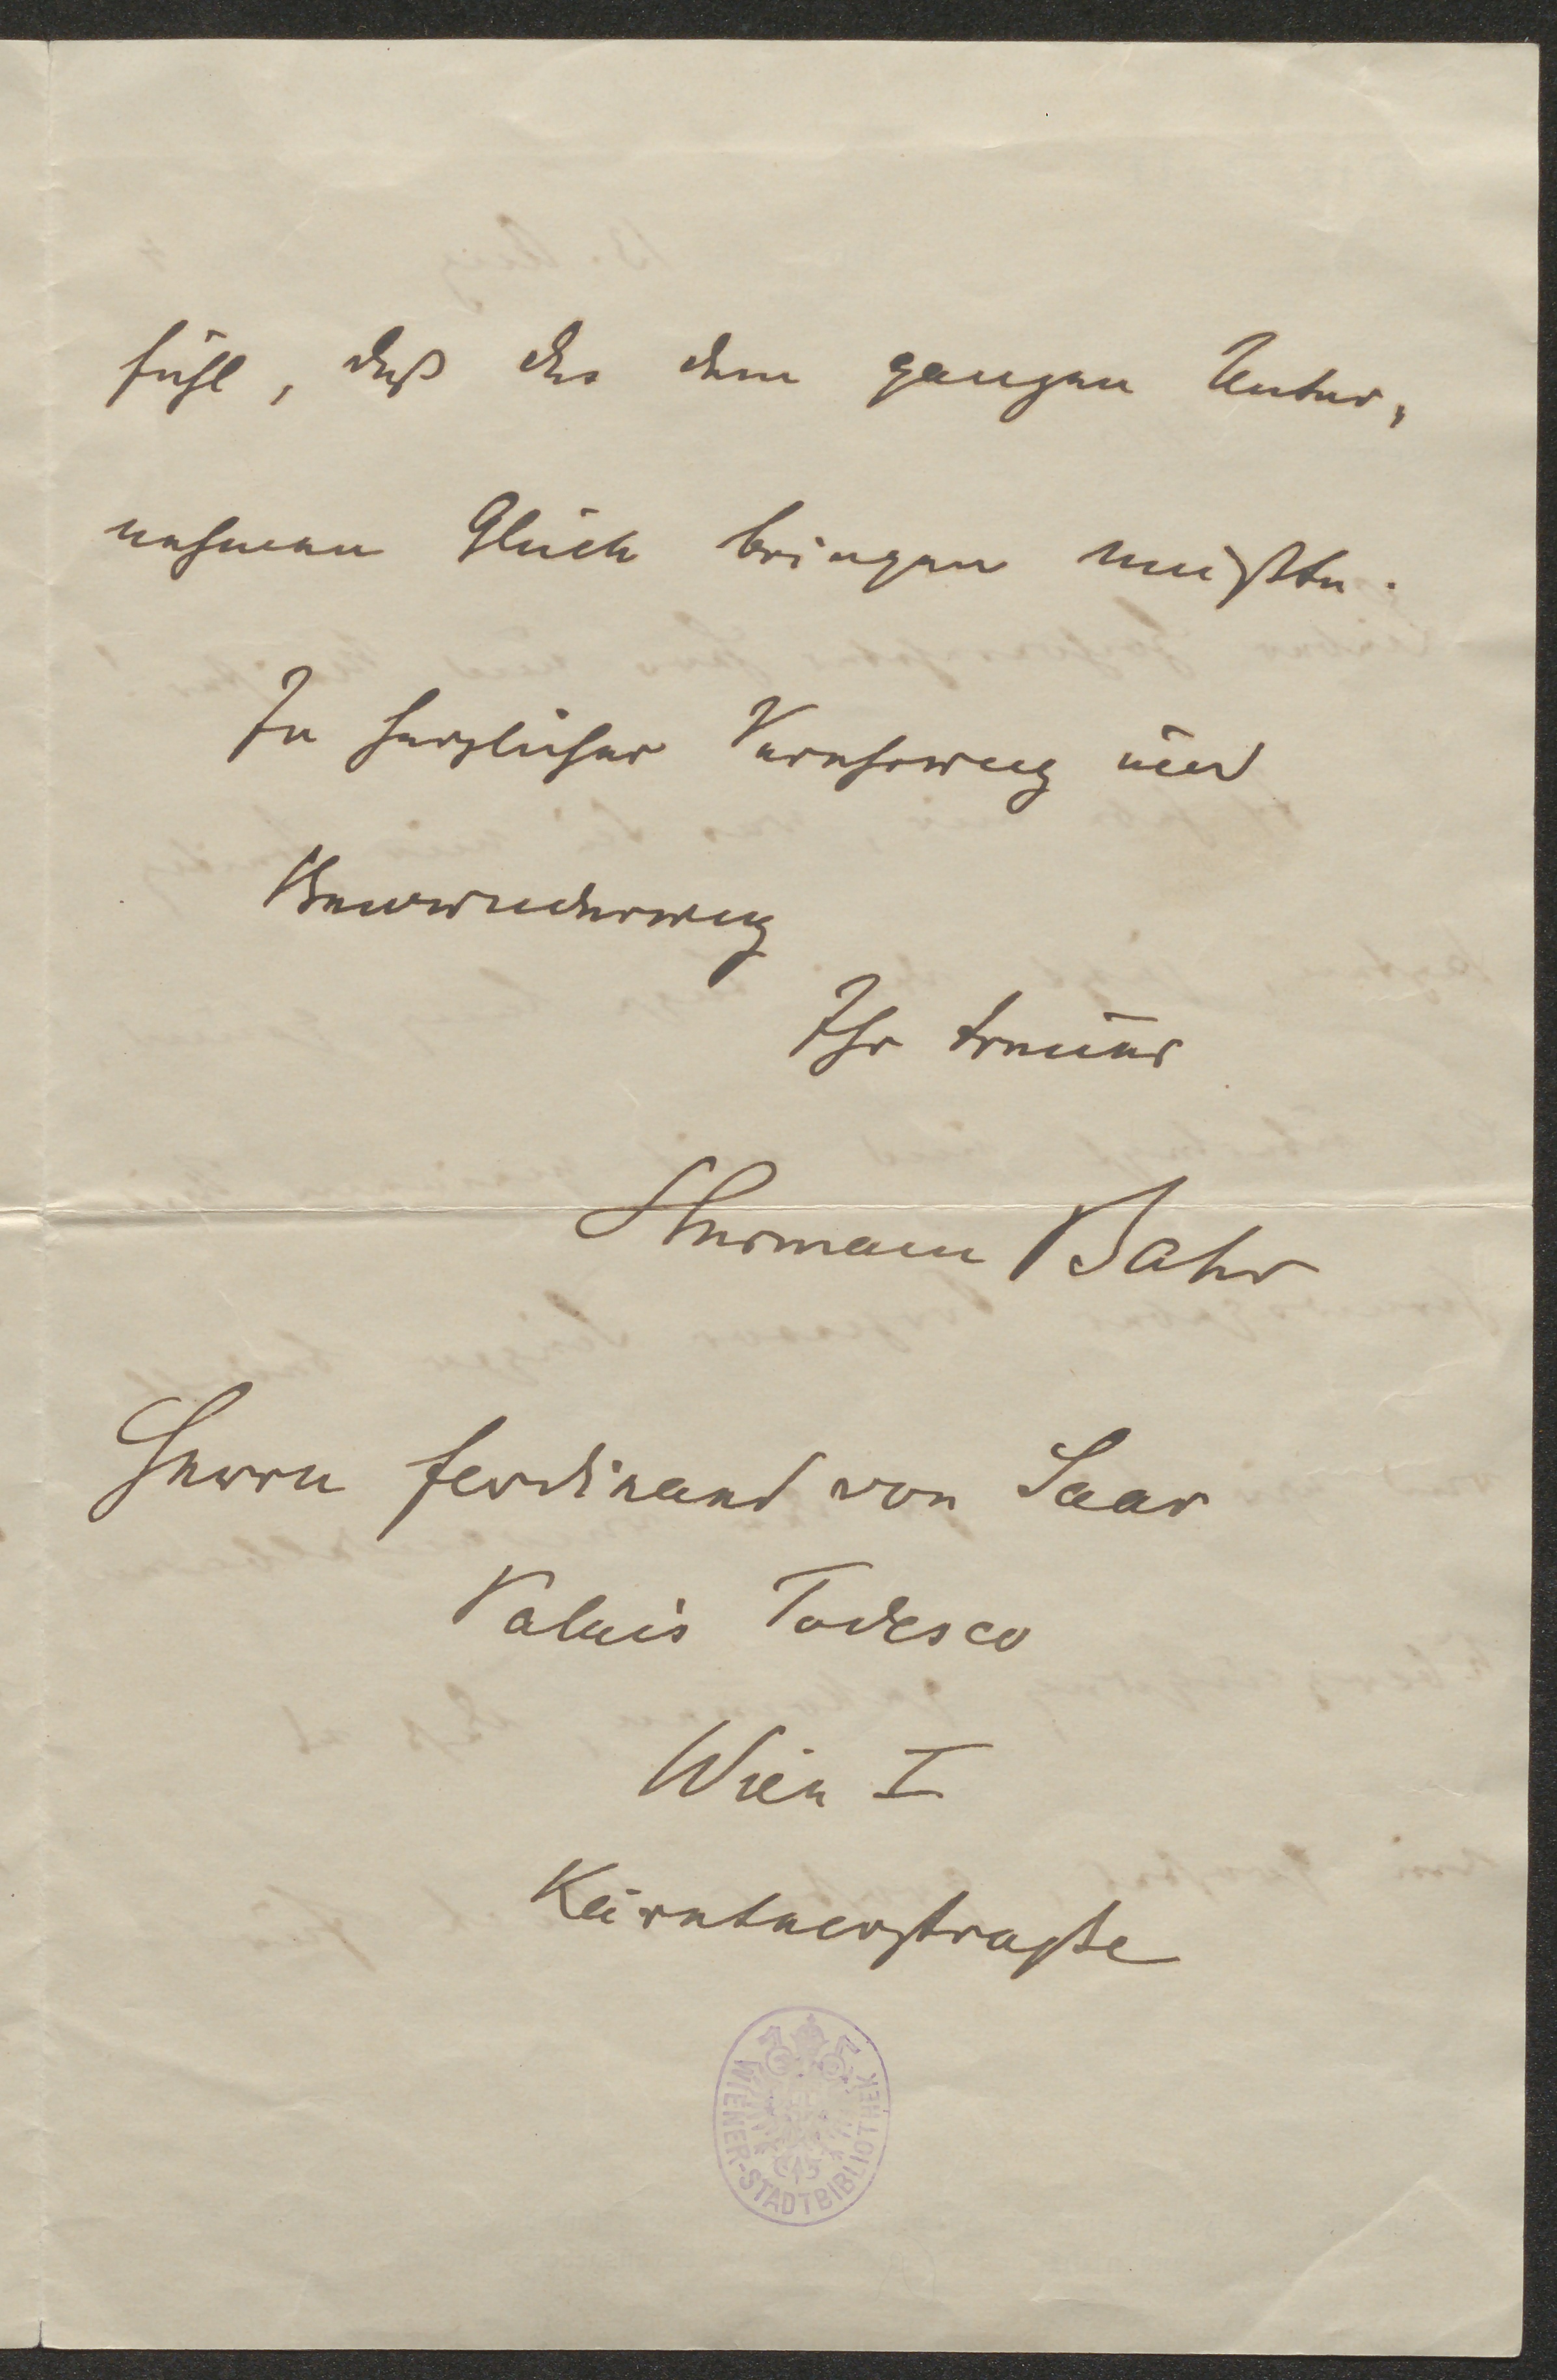 fühl, daß das dem ganzen Unter-
nehmen Glück bringen müßte.
In herzlicher Verehrung und
Bewunderung
Ihr treuer
Hermann Bahr
Herrn Ferdinand von Saar
Palais Todesco
Wien I
Kärntnerstraße
WIENER-STADTBIBLIOTHEK